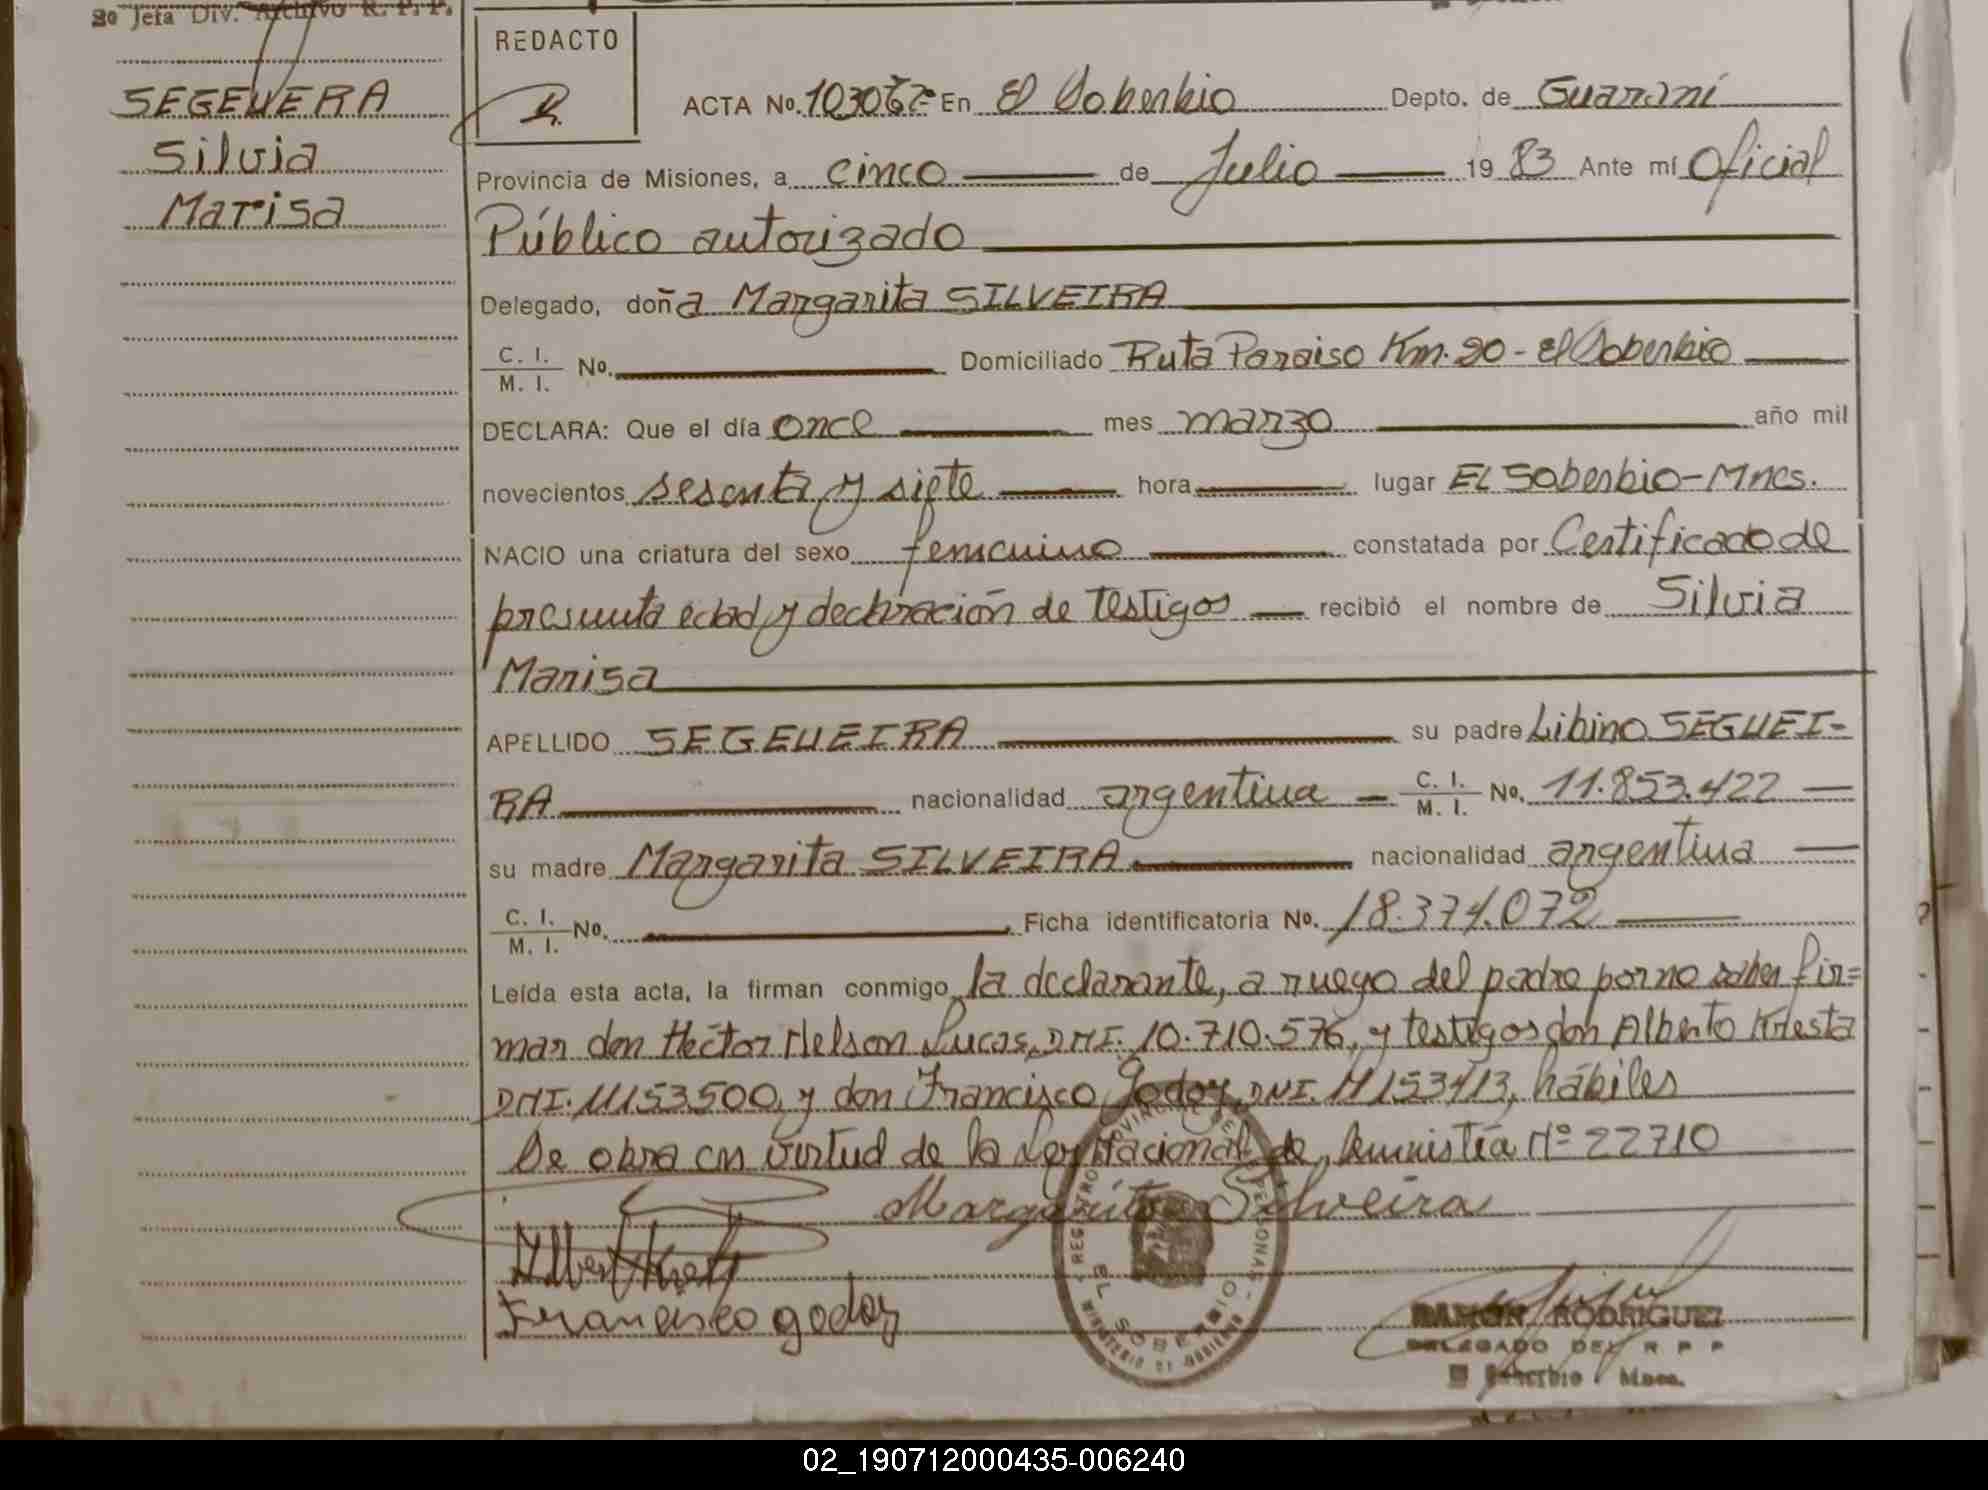 2º Jefa Div. Archivo R. P. P.
SEGEUERA
Silvia
Marisa
REDACTO
ACTA No. En El Soberbio Depto. de Guaraní
Provincia de Misiones, a cinco de Julio 19 83 Ante mí Oficial
Público autorizado
Delegado, doña Margarita SILVEIRA
C. I.
M. I. No. Domiciliado Ruta Paraiso Km. 20 - El Soberbio
DECLARA: Que el día once mes marzo año mil
novecientos sesenta y siete hora lugar EL Soberbio-Mnes.
NACIO una criatura del sexo femenino constatada por Certificado de
presunta edad y declaración de testigos recibió el nombre de Silvia
Marisa
APELLIDO SEGEUEIRA su padre Libino SEGUEI-
RA nacionalidad argentina C. I. M. I. No. 11.853.422
su madre Margarita SILVEIRA nacionalidad argentina
C. I.
M. I. No. Ficha identificatoria No. 18.374.072
Leída esta acta, la firman conmigo, la declarante, a ruego del padre por no saber fir=
mar don Héctor Nelson Lucas, DNI. 10.710.576, y testigos don Alberto Kresta
DNI. 11153500, y don Francisco Godoy, DNI. 11153413, hábiles
Se obra en virtud de la Ley Nacional de Amnistía Nº 22710
Margarita Silveira
Francisco godoy
REGISTRO PROVINCIAL DE PERSONAS
EL SOBERBIO
MINISTERIO DE GOBIERNO
RAMON RODRIGUEZ
DELEGADO DEL R P P
El Soberbio - Mnes.
02_190712000435-006240